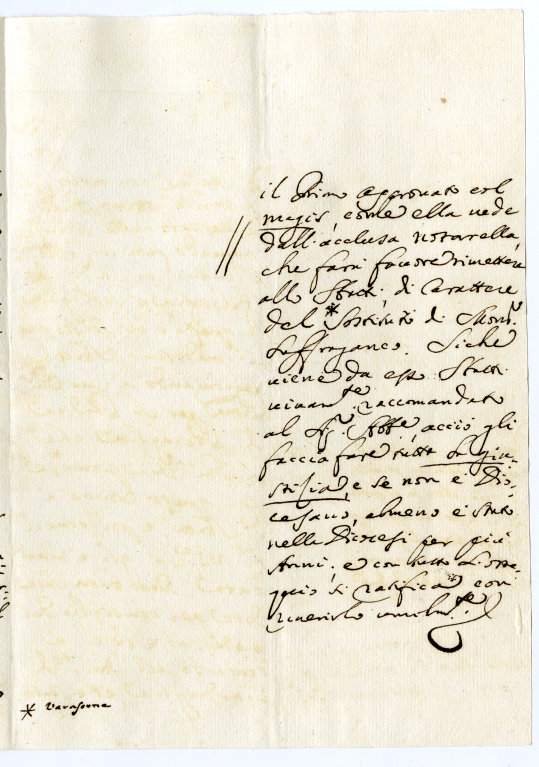 il Primo approvato col
magis, come ella vede
dall'acclusa notarella,
che farà favore rimettere
allo Stotti, di Carattere
del * Sostituto di Monr.
Suffraganeo. Siche
viene da esso Stotti
vivamte raccomandato
al Sr. Abbe, acciò gli
faccia fare tutta la giu-
stizia, e se non è Dio-
cesano, almeno è stato
nella Diocesi per più
Anni; e con tutto l'osse-
quio si ratifica con
riverirlo umilmte.
*